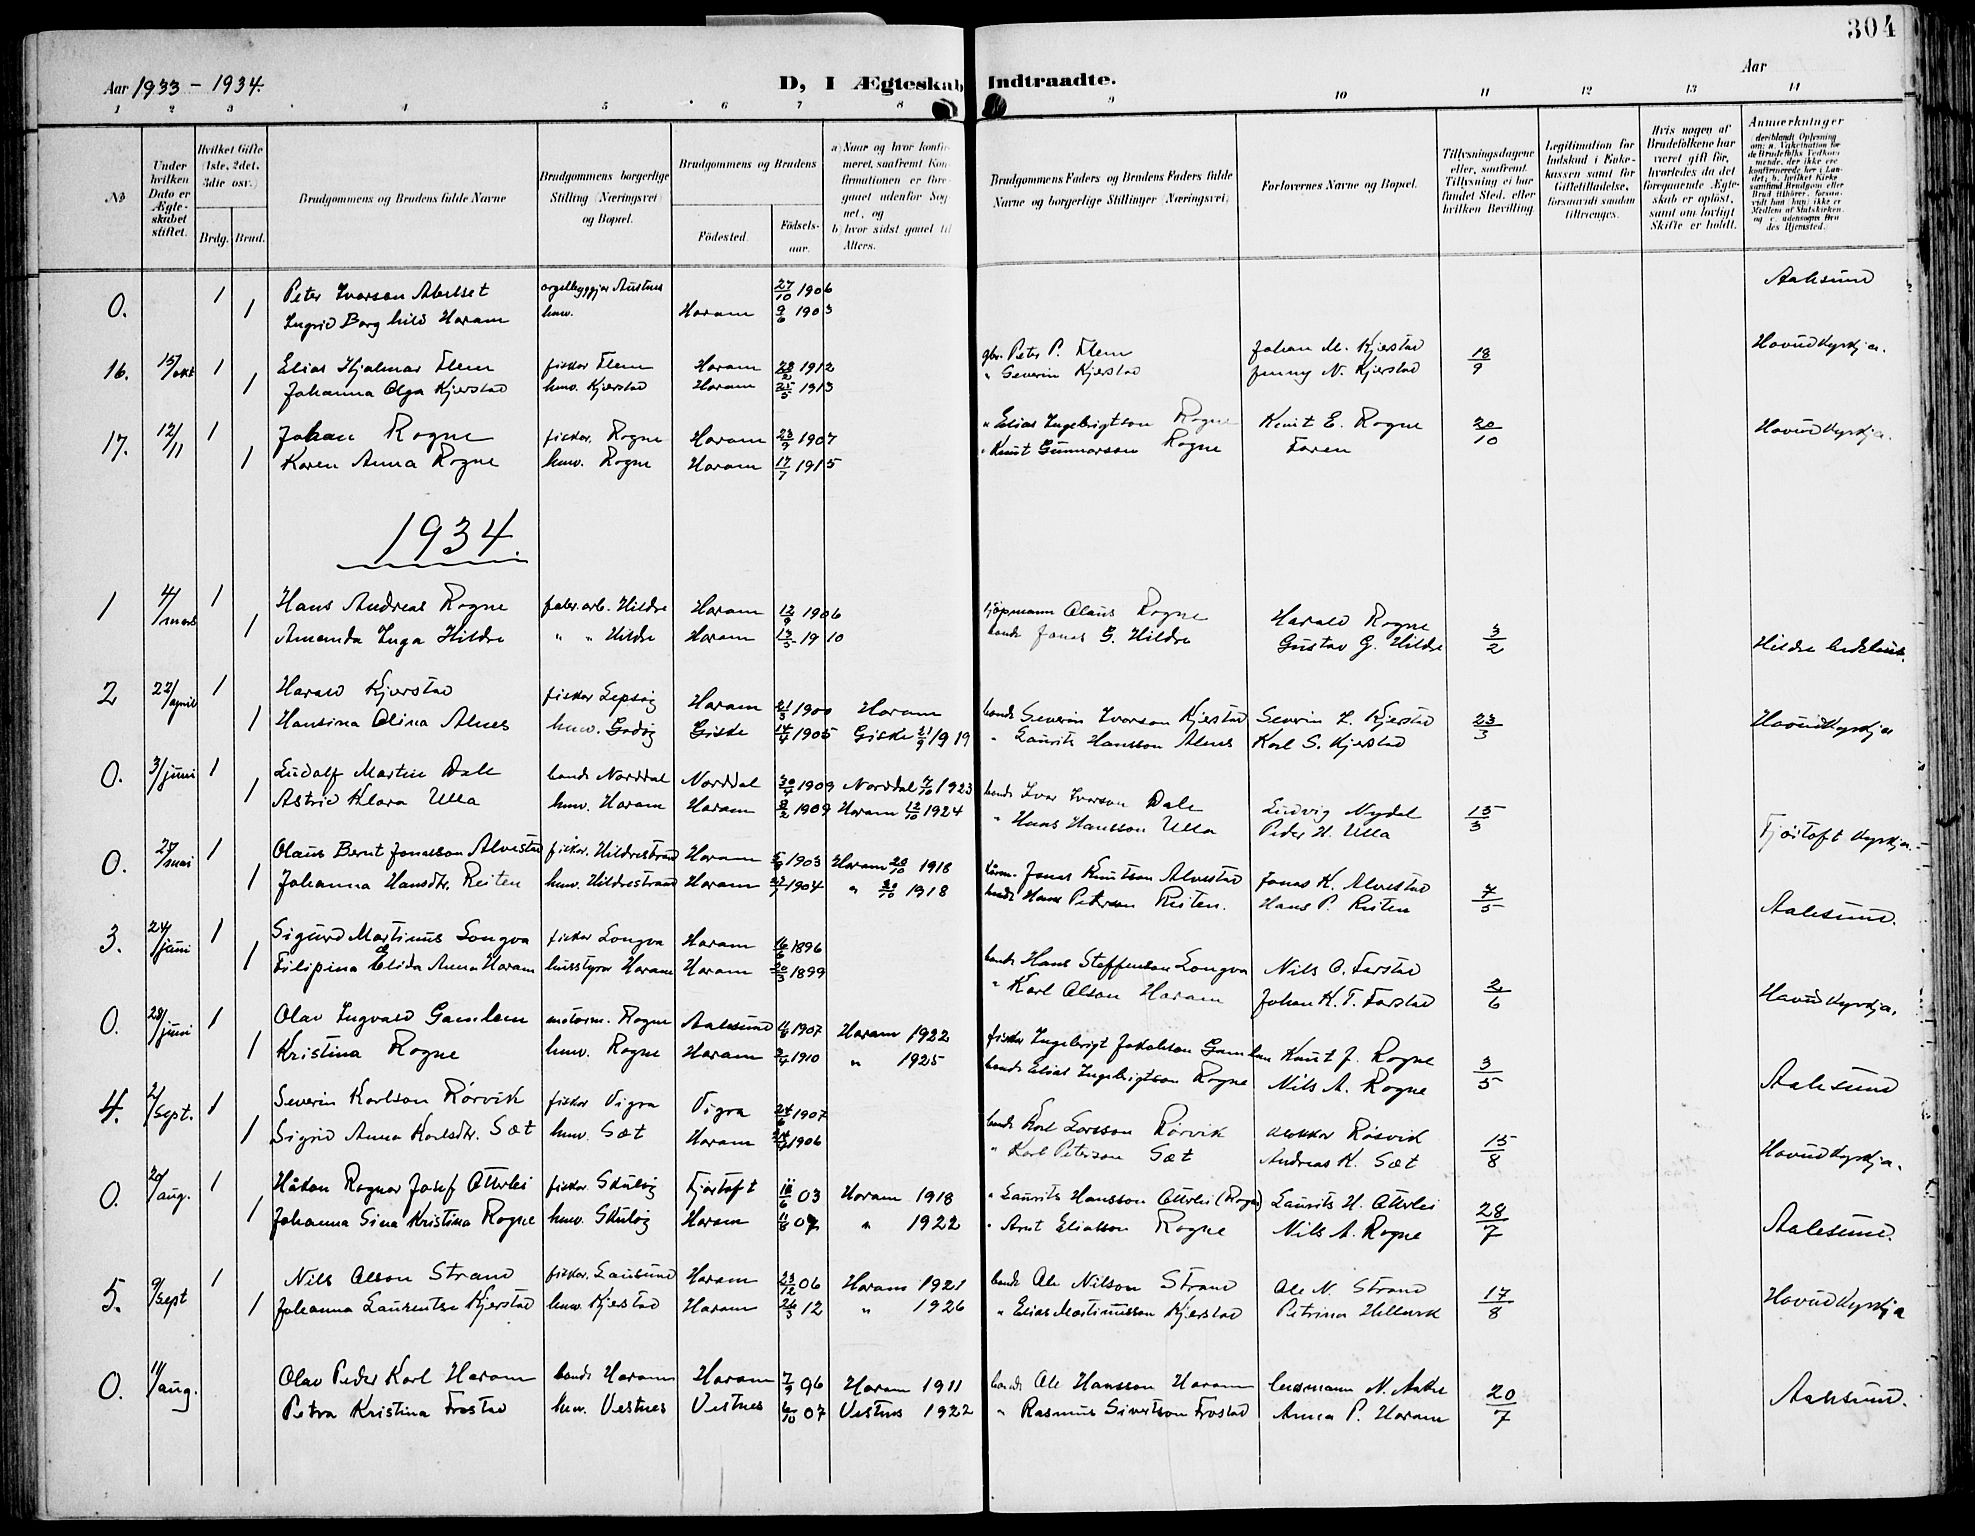 304
Aar 1933 - 1934.
D, I Ægteskab Indtraadte.
Aar
1 2 3 4 5 6 7 8 9 10 11 12 13 14
No
Under hvilken Dato er Ægteskabet stiftet.
Hvilket Gifte (1ste, 2det, 3die osv.)
Brdg. Brud.
Brudgommens og Brudens fulde Navne
Brudgommens borgerlige Stilling (Næringsvei) og Bopæl.
Brudgommens og Brudens
Fødested.
Fødselsaar.
a) Naar og hvor konfirmeret, saafremt Konfirmationen er foregaaet udenfor Sognet, og
b) hvor sidst gaaet til Alters.
Brudgommens Faders og Brudens Faders fulde Navne og borgerlige Stillinger (Næringsvei)
Forlovernes Navne og Bopæl.
Tillysningsdagene eller, saafremt Tillysning ei har fundet Sted, efter hvilken Bevilling.
Legitimation for Indskud i Enkekassen samt for Giftetilladelse, forsaavidt saadan tiltrænges.
Hvis nogen af Brudefolkene har været gift før, hvorledes da det foregaaende Ægteskab er opløst, samt om lovligt Skifte er holdt.
Anmærkninger
0. 1 Peter Iverson Abelset orgelbyggjar Austnes 27/10 1906 Aalesund
1 Ingrid Borghild Haram hmv. Haram 9/6 1903
16. 15/okt 1 Elias Hjalmar Flem fisker Flem Haram 28/2 1912 gbr. Peter P. Flem Johan M. Kjerstad 18/9 Hovudkyrkja.
1 Johanna Olga Kjerstad hmv. Kjerstad Haram 25/5 1913 " Severin Kjerstad Jenny N. Kjerstad
17. 12/11 1 Johan Rogne fisker. Rogne Haram 23/9 1907 " Elias Ingebrigtson Rogne Knut E. Rogne 20/10 Hovudkyrkja.
1 Karen Anna Rogne hmv. Rogne Haram 17/7 1915 " Knut Gunnarson Rogne Faren
1934.
1 4/mars 1 Hans Andreas Rogne fabr. arb. Hildre Haram 12/9 1906 Olaus Rogne Harald Rogne 3/2
1 Amanda Inga Hildre " " Hildre Haram 13/5 1910 bonde Jonas G. Hildre Gustav G. Hildre Hildre
2 22/april 1 Harald Kjerstad fisker Lepsøy Haram 21/3 1900 Haram bonde Severin Iverson Kjerstad Severin I. Kjerstad 23/3 Hovudkyrkja
1 Hansina Olina Alnes hmv. Godøy Giske 14/4 1905 Giske 21/9 1919 " Laurits Hansson Alnes Karl S. Kjerstad
0. 3/juni 1 Ludolf Martin Dale bonde Norddal Norddal 30/4 1909 Norddal 7/10 1923 bonde Ivar Iverson Dale Ludvig Nydal 15/3 Fjørtoft kyrkja.
1 Astrid Klara Ulla hmv. Haram Haram 9/2 1909 Haram 12/10 1924 " Hans Hansson Ulla Peder H. Ulla
0. 27/mai 1 Olaus Bernt Jonasson Alvestad fisker. Hildrestrand Haram 1903 Haram 20/10 1918 Jonas Knutson Alvestad Jonas K. Alvestad 7/5 Aalesund.
1 Johanna Hansdtr. Reiten hmv. Hildrestrand Haram 1904 " 20/10 1918 bonde Hans Peterson Reiten. Hans P. Reiten
3. 24/juni 1 Sigurd Martinus Longva fisker Longva Haram 1896 bonde Hans Steffenson Longva Nils O. Farstad 2/6 Hovudkyrkja.
1 Filipina Elida Anna Haram husstyrar Haram Haram 1899 " Karl Olson Haram Johan K. T. Farstad
0. 28/juni 1 Olav Ingvald Gamlem motorm. Rogne Aalesund 1907 Haram 1922 fisker Ingebrigt Jakobson Gamlem Knut J. Rogne 3/5 Aalesund
1 Kristina Rogne hmv. Rogne Haram 1910 " 1925 bonde Elias Ingebrigtson Rogne Nils A. Rogne
4. 2/sept. 1 Severin Karlson Rørvik fisker Vigra Vigra 1907 bonde Karl Larsson Rørvik klokkar Røsvik 15/8 Hovudkyrkja.
1 Sigrid Anna Karlsdtr. Sæt hmv. Sæt Haram 1906 " Karl Peterson Sæt Andreas K. Sæt
0. 20/aug. 1 Håkon Ragnar Josef Otterlei fisker Skuløy Fjørtoft 18/6 03 Haram 1918 " Laurits Hansson Otterlei (Rogne) Laurits H. Otterlei 28/7 Aalesund.
1 Johanna Sina Kristina Rogne hmv. Skuløy Haram 11/8 07 " 1922 " Arnt Eliasson Rogne Nils A. Rogne
5. 9/sept 1 Nils Olson Strand fisker. Longva Haram 23/12 06 Haram 1921 bonde Ole Nilson Strand Ole N. Strand 17/8 Hovudkyrkja
1 Johanna Laurentse Kjerstad hmv. Kjerstad Haram 26/3 12 " 1926 " Elias Martinusson Kjerstad Petrina Hellevik
0. 11/aug. Olav Peder Karl Haram bonde Haram Haram 7/9 96 Haram 1911 bonde Ole Hansson Haram N. Aakre 20/7 Aalesund.
Petra Kristina Frostad hmv. Vestnes Vestnes 6/10 07 Vestnes 1922 " Rasmus Sivertson Frostad Anna P. Haram